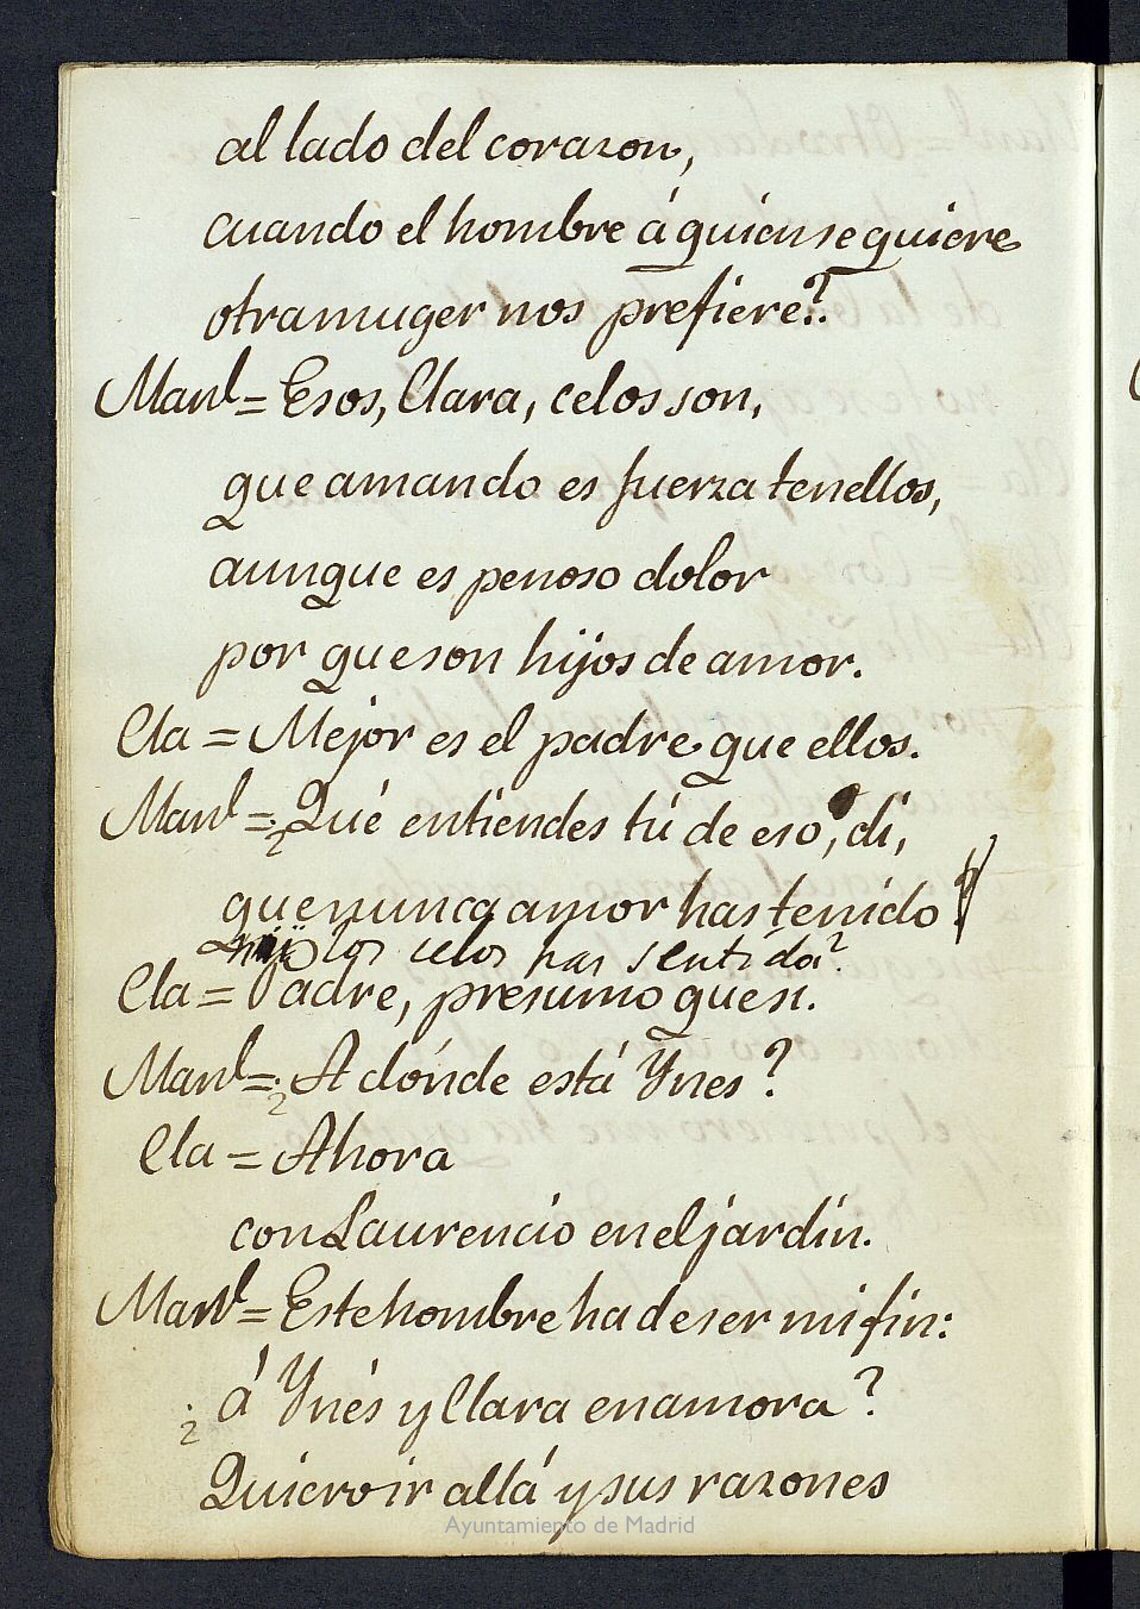 al lado del corazon,
cuando el hombre á quien se quiere
otra muger nos prefiere?.
Manl = Esos, Clara, celos son,
que amando es fuerza tenellos,
aunque es penoso dolor
por que son hijos de amor.
Cla = Mejor es el padre que ellos.
Manl = ¿Qué entiendes tú de eso, di,
que nunca amor has tenido?
los celos has sentido?.
Cla = Padre, presumo que si.
Manl = ¿A dónde está Ynes?
Cla = Ahora
con Laurencio en el jardin.
Manl = Este hombre ha de ser mi fin:
¿á Ynés y Clara enamora?
Quiero ir allá y sus razones
Ayuntamiento de Madrid